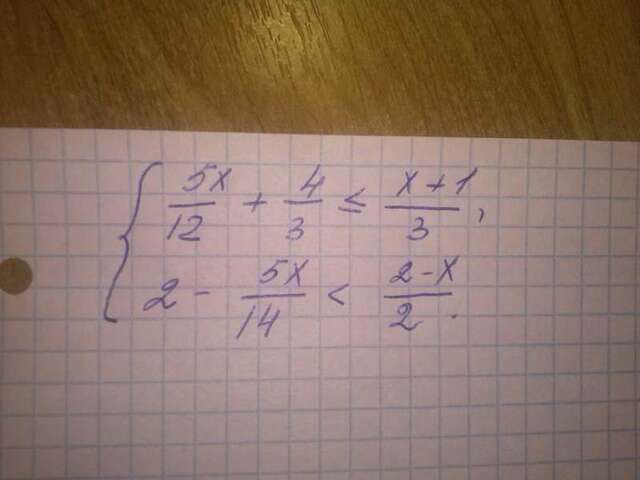 5x/12 + 4/3 ≤ x+1/3,
2 - 5x/14 < 2-x/2.